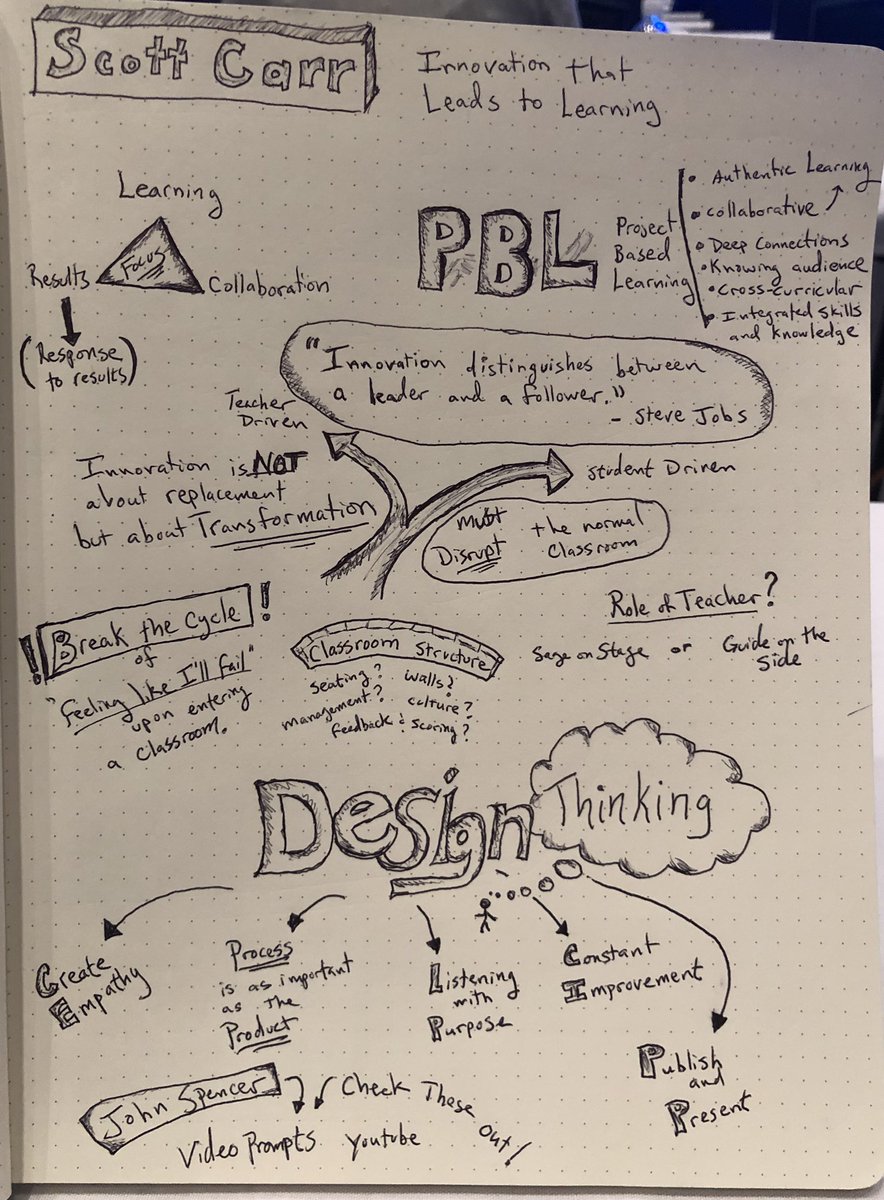 Scott Carr
Innovation that
Leads to Learning
Learning
Focus
Results
Collaboration
(Response
to results)
PBL
Project
Based
Learning
• Authentic Learning
• Collaborative
• Deep Connections
• Knowing audience
• Cross-curricular
• Integrated skills
and knowledge
"Innovation distinguishes between
a leader and a follower."
- Steve Jobs
Teacher
Driven
Student Driven
Innovation is NOT
about replacement
but about Transformation
Must
Disrupt the normal
classroom
! Break the Cycle !
of
"feeling like I'll fail"
upon entering
a classroom.
Classroom Structure
seating? walls?
management? culture?
feedback & scoring?
Role of Teacher?
Sage on Stage or Guide on the
Side
Design Thinking
Create
Empathy
Process
is as important
as the
Product
Listening
with
Purpose
Constant
Improvement
Publish
and
Present
John Spencer
Check These
out!
Video Prompts youtube